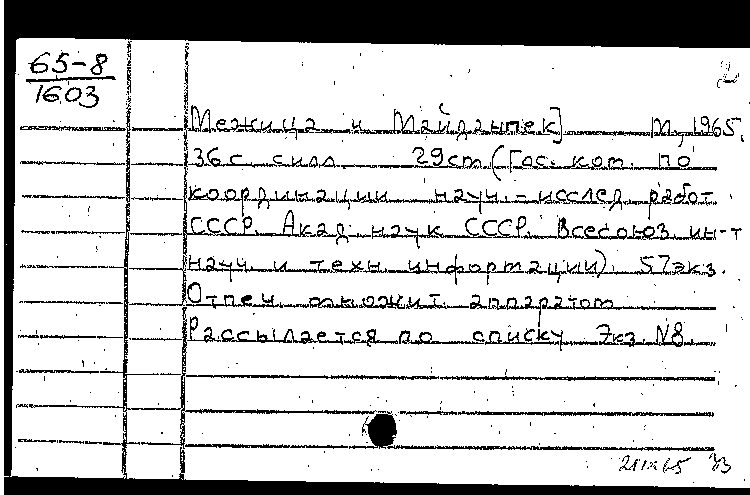 65-8
1603
2
Межица и Майданпек] М, 1965.
36 с. с илл. 29 см (Гос. ком. по
координации науч.-исслед. работ
СССР. Акад. наук СССР. Всесоюз. ин-т
науч. и техн. информации). 57 экз.
Отпеч. множит. аппаратом
Рассылается по списку Экз. №8.